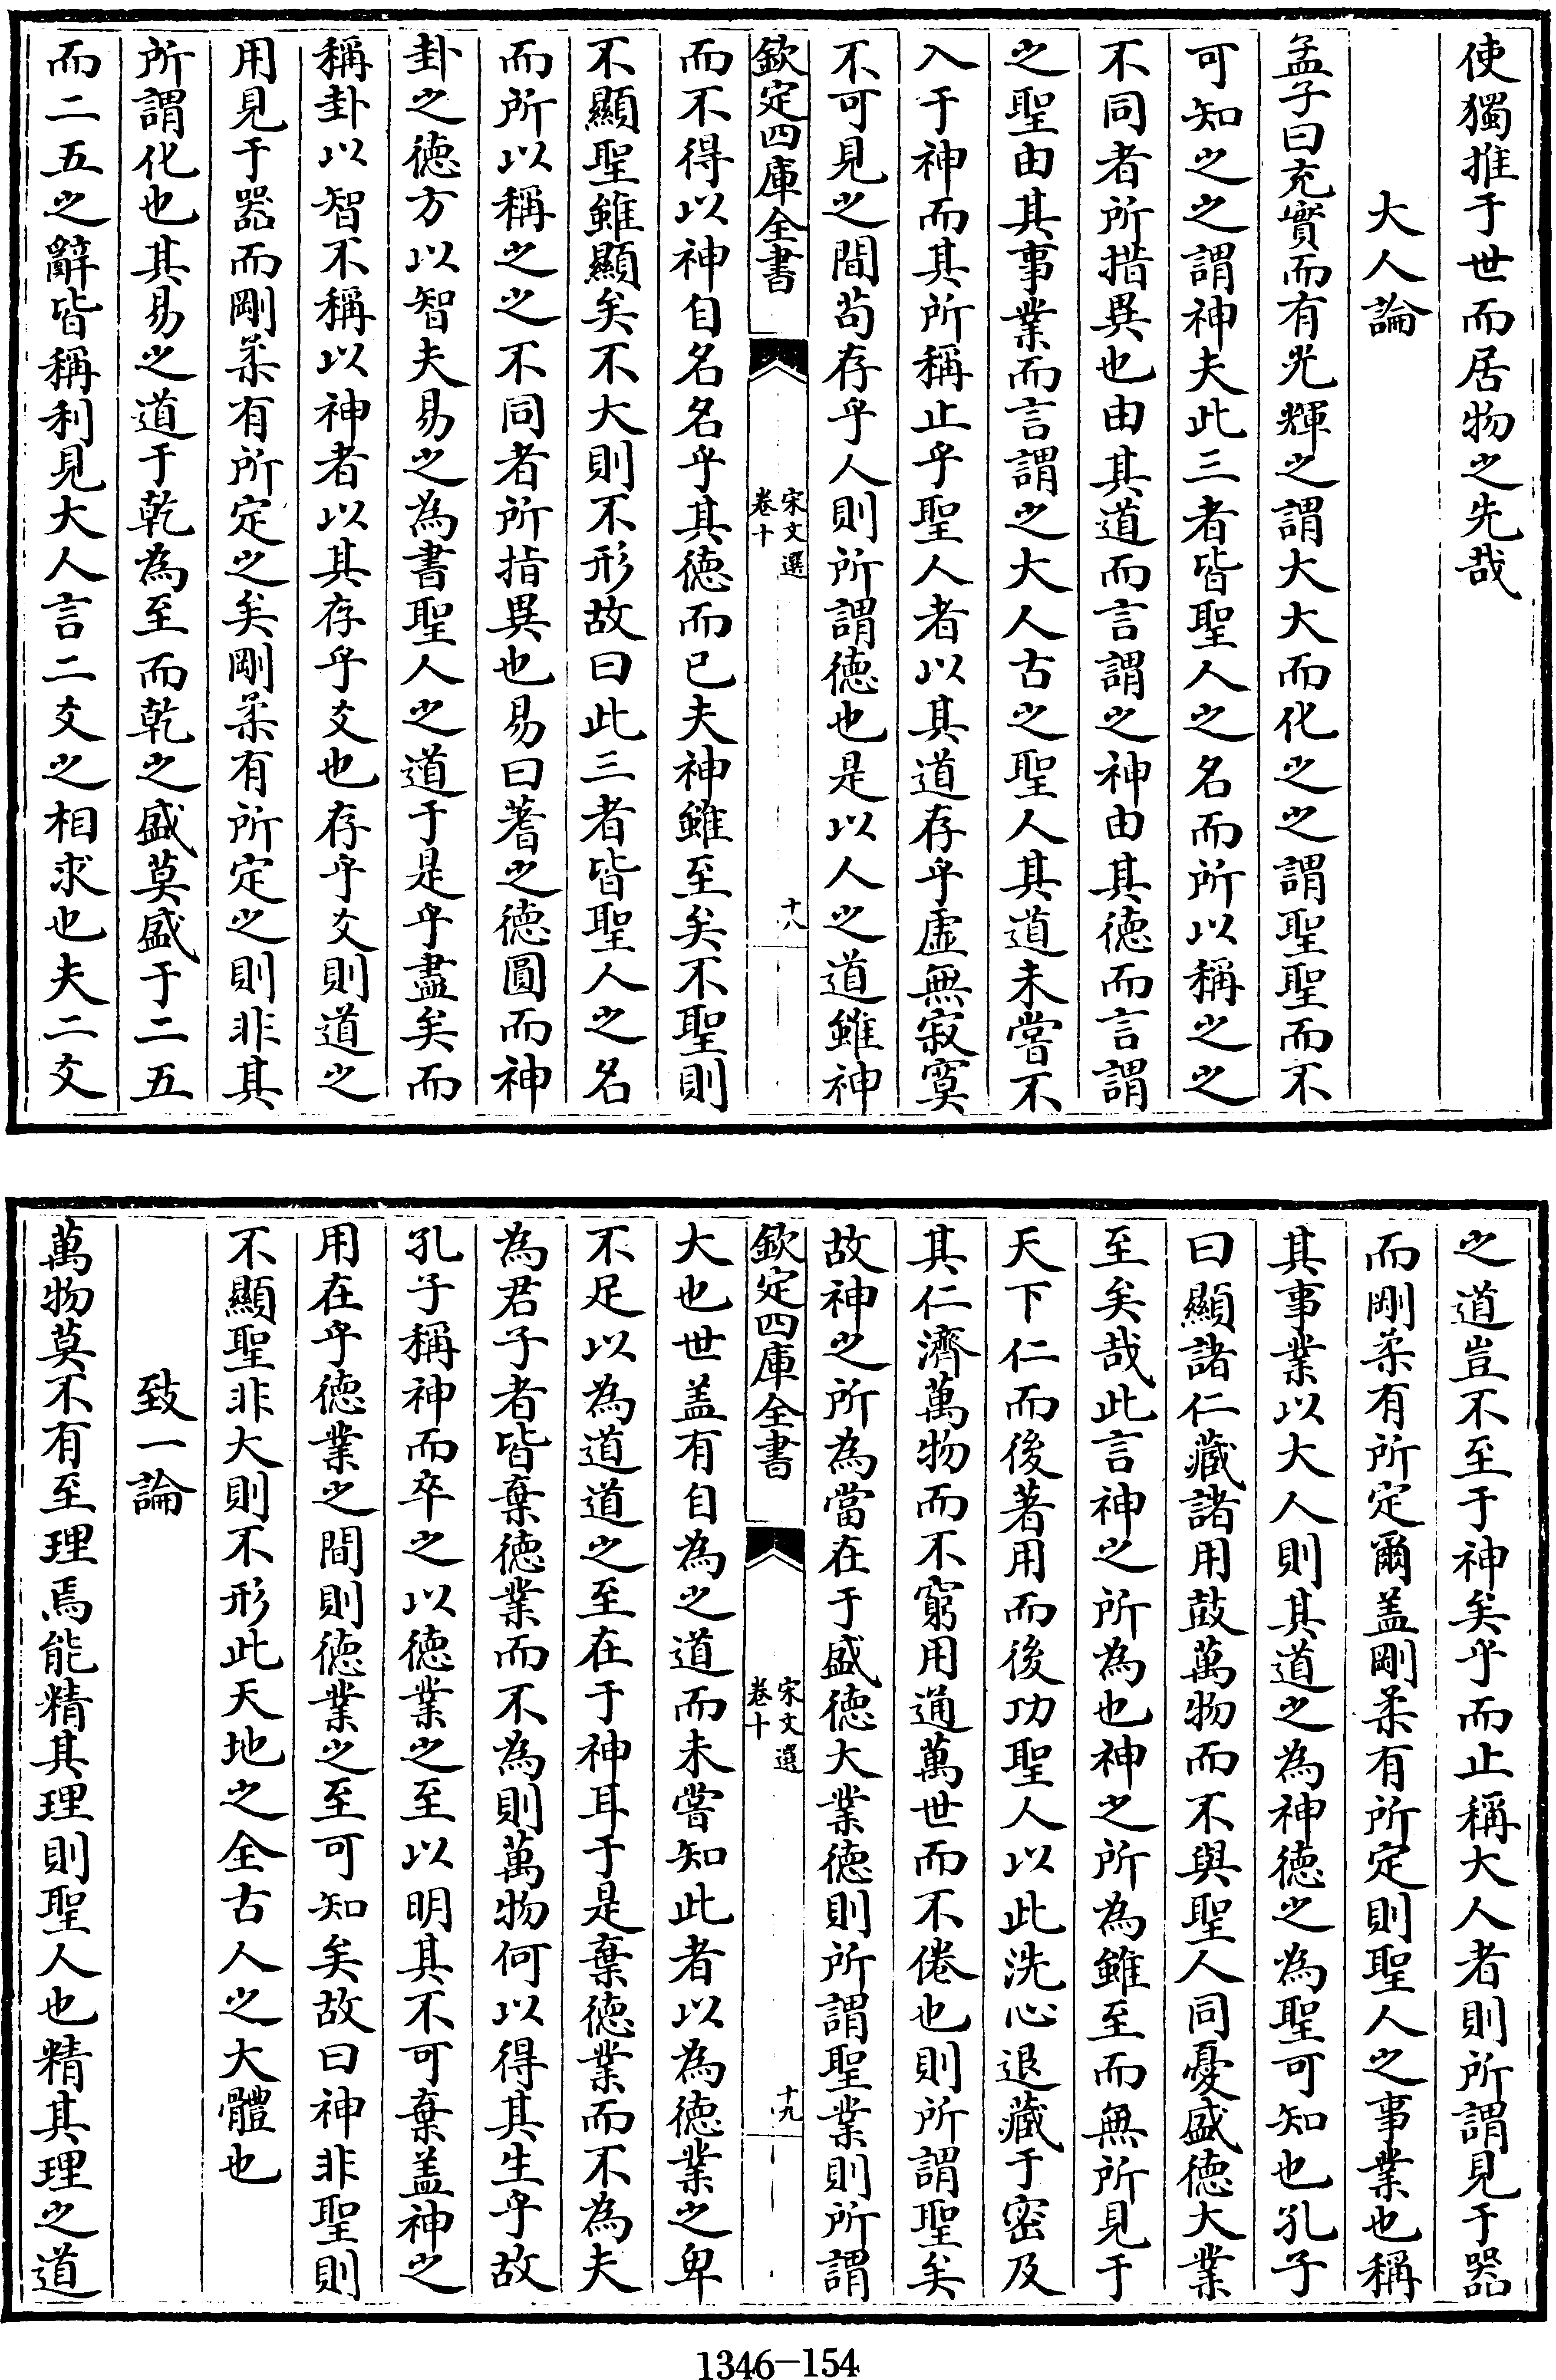 使獨推于世而居物之先哉
大人論
孟子曰充實而有光輝之謂大大而化之之謂聖聖而不
可知之之謂神夫此三者皆聖人之名而所以稱之之
不同者所措異也由其道而言謂之神由其德而言謂
之聖由其事業而言謂之大人古之聖人其道未嘗不
入于神而其所稱止乎聖人者以其道存乎虛無寂寞
不可見之間苟存乎人則所謂德也是以人之道雖神
欽定四庫全書
宋文選
卷十
十八
而不得以神自名名乎其德而已夫神雖至矣不聖則
不顯聖雖顯矣不大則不形故曰此三者皆聖人之名
而所以稱之之不同者所指異也易曰蓍之德圓而神
卦之德方以智夫易之為書聖人之道于是乎盡矣而
稱卦以智不稱以神者以其存乎爻也存乎爻則道之
用見于器而剛柔有所定之矣剛柔有所定之則非其
所謂化也其易之道于乾為至而乾之盛莫盛于二五
而二五之辭皆稱利見大人言二爻之相求也夫二爻
之道豈不至于神矣乎而止稱大人者則所謂見于器
而剛柔有所定爾盖剛柔有所定則聖人之事業也稱
其事業以大人則其道之為神德之為聖可知也孔子
曰顯諸仁藏諸用鼓萬物而不與聖人同憂盛德大業
至矣哉此言神之所為也神之所為雖至而無所見于
天下仁而後著用而後功聖人以此洗心退藏于密及
其仁濟萬物而不窮用通萬世而不倦也則所謂聖矣
故神之所為當在于盛德大業德則所謂聖業則所謂
欽定四庫全書
宋文選
卷十
十九
大也世盖有自為之道而未嘗知此者以為德業之卑
不足以為道道之至在于神耳于是棄德業而不為夫
為君子者皆棄德業而不為則萬物何以得其生乎故
孔子稱神而卒之以德業之至以明其不可棄盖神之
用在乎德業之間則德業之至可知矣故曰神非聖則
不顯聖非大則不形此天地之全古人之大體也
致一論
萬物莫不有至理焉能精其理則聖人也精其理之道
1346-154